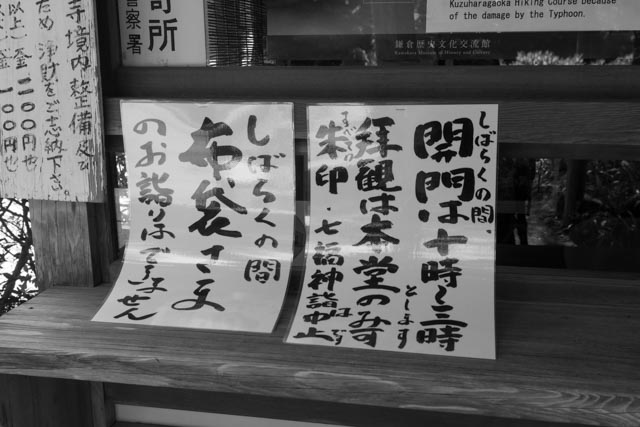 Kuzuharagaoka Hiking Course because
of the damage by the Typhoon.
鎌倉歴史文化交流館
Kamakura Museum of History and Culture
しばらくの間、
開門は十時〜三時
とします
拝観は本堂のみ可
すべての
朱印・七福神詣中止
しばらくの間
布袋さま
のお詣りはできません
所
警察署
寺境内整備及び
ため 浄財をご志納下さい。
以上)金 二〇〇円也
金 一〇〇円也